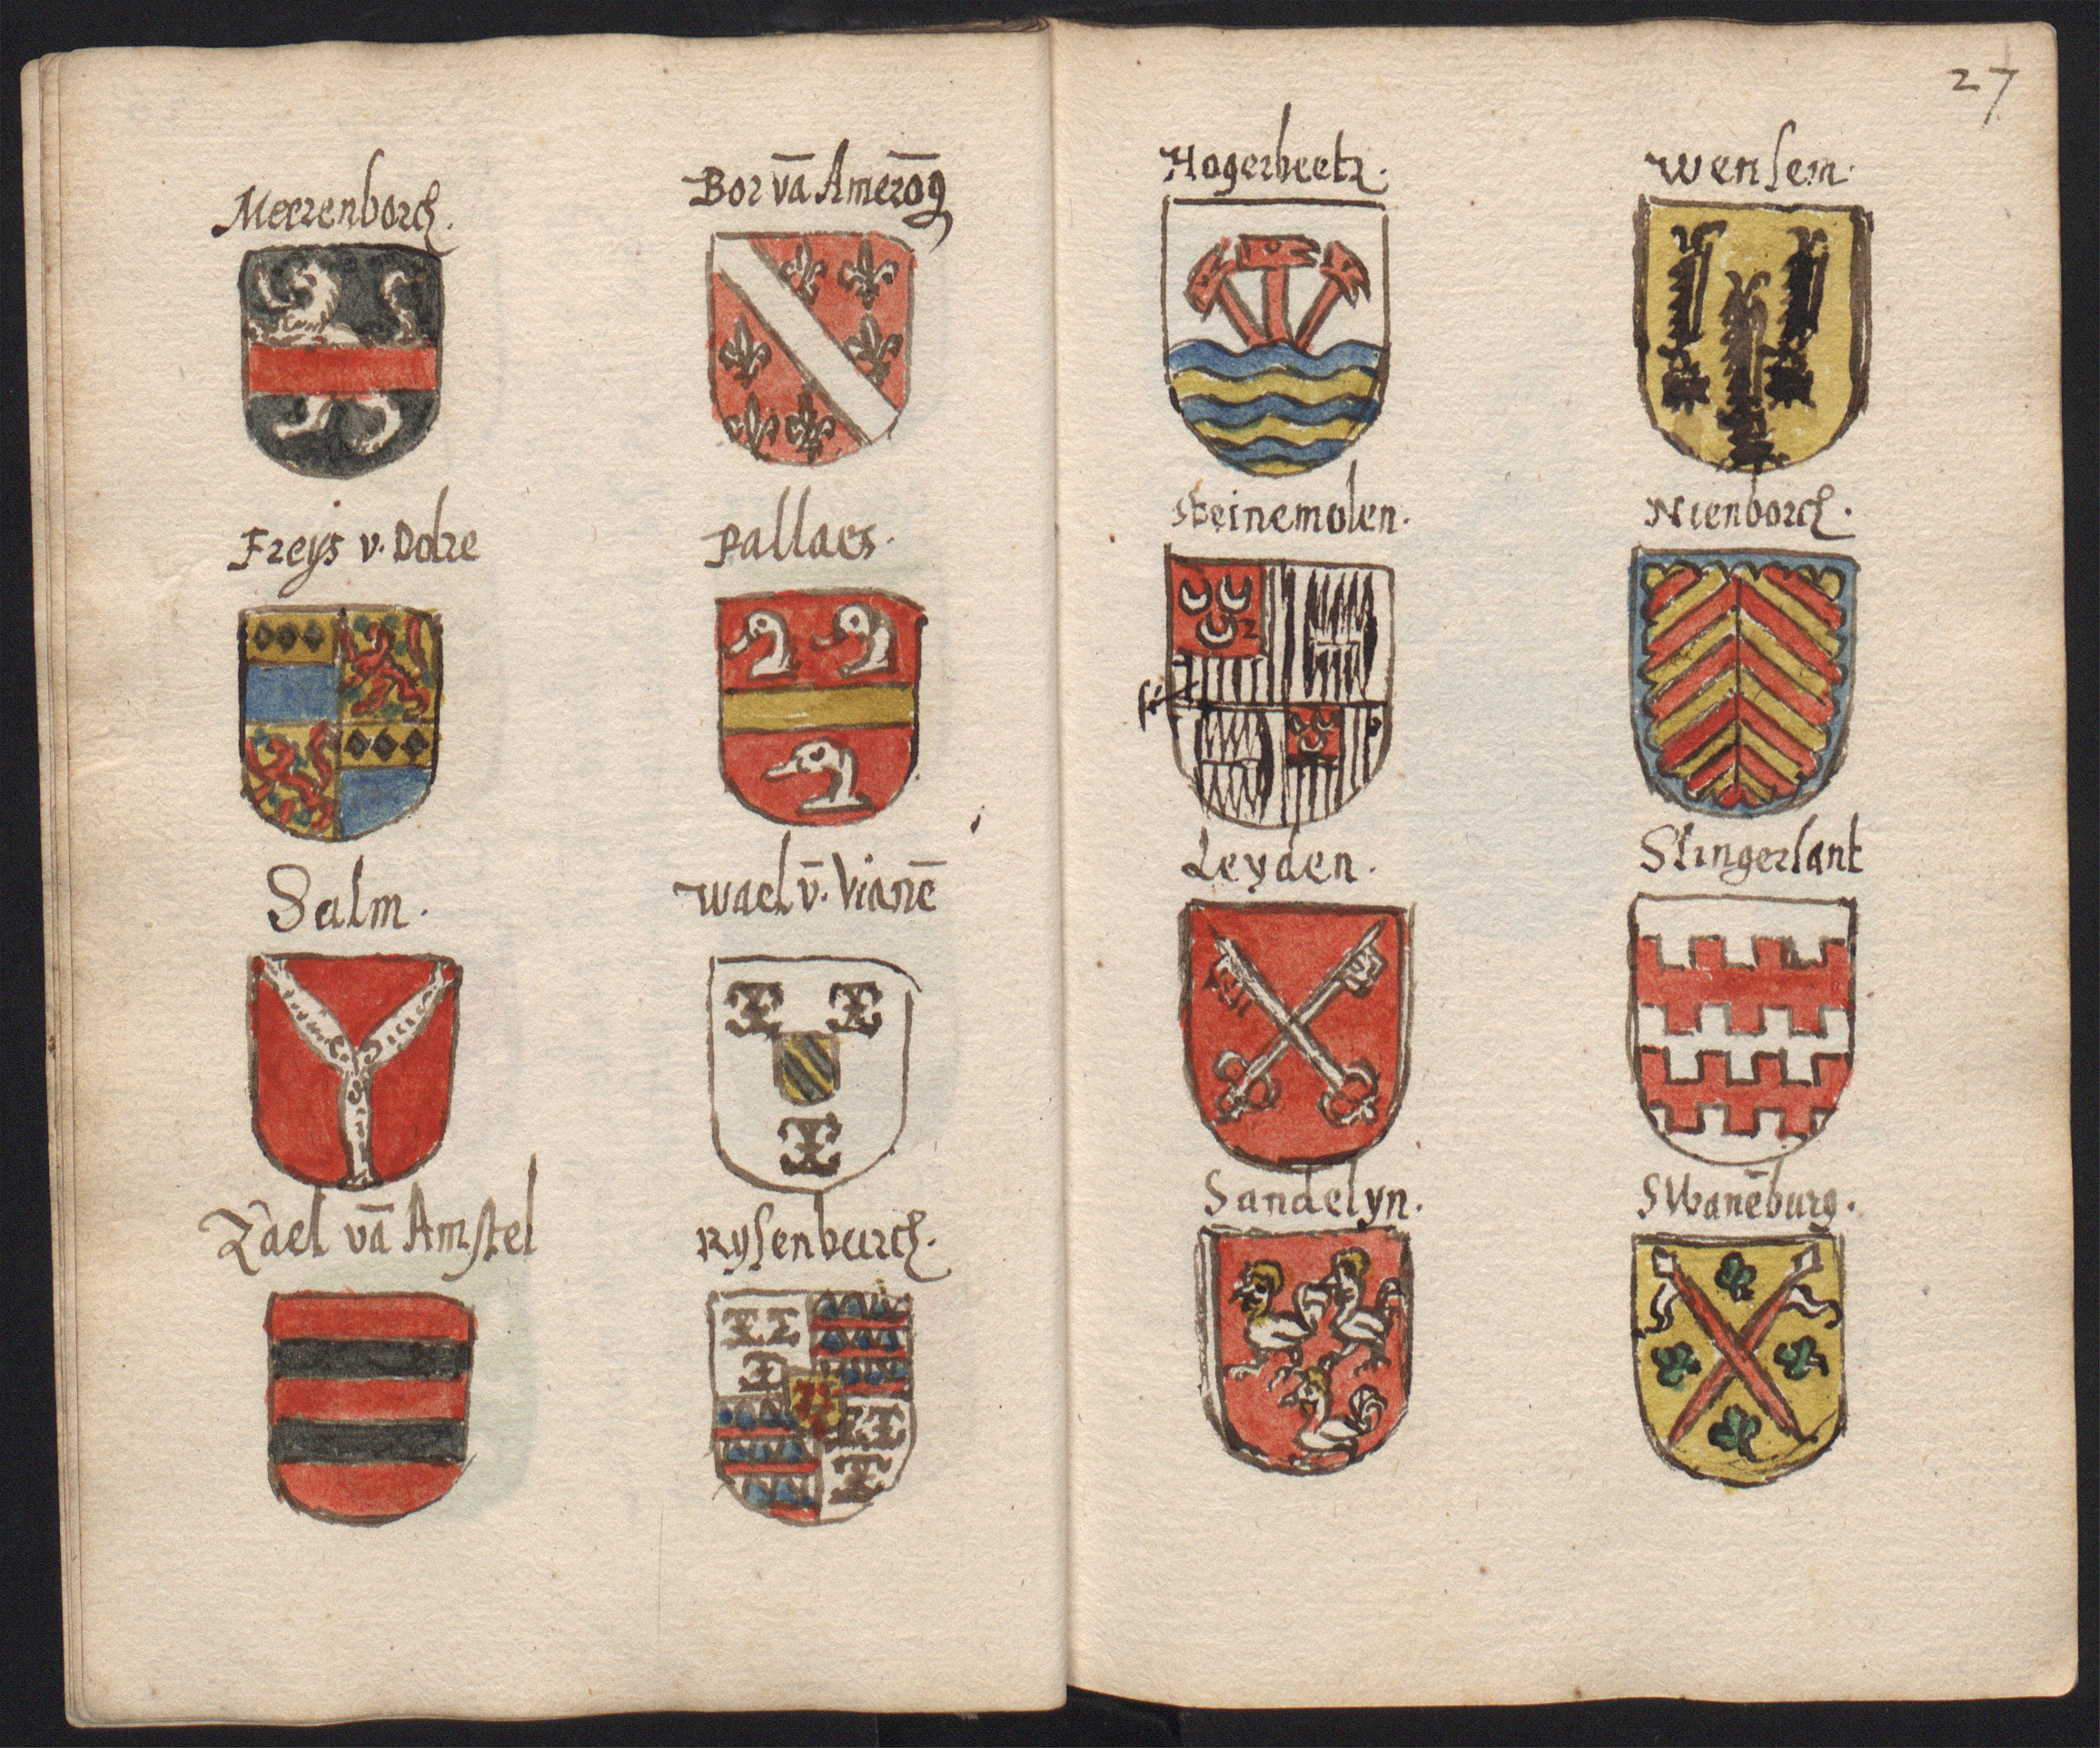 Meerenborch.
Bor vā Amerōg
Freys v. Dolre
Pallaes.
Salm.
Wael v̄. Vianē
Zael vā Amstel
Rysenburch.
27
Hogerbeetz.
Wensem.
Steinemolen.
Nienborch.
Leyden.
Slingerlant
Sandelyn.
SWanēburg.